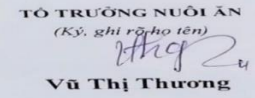 TỔ TRƯỞNG NUÔI ĂN
(Ký, ghi rõ họ tên)
Vũ Thị Thương